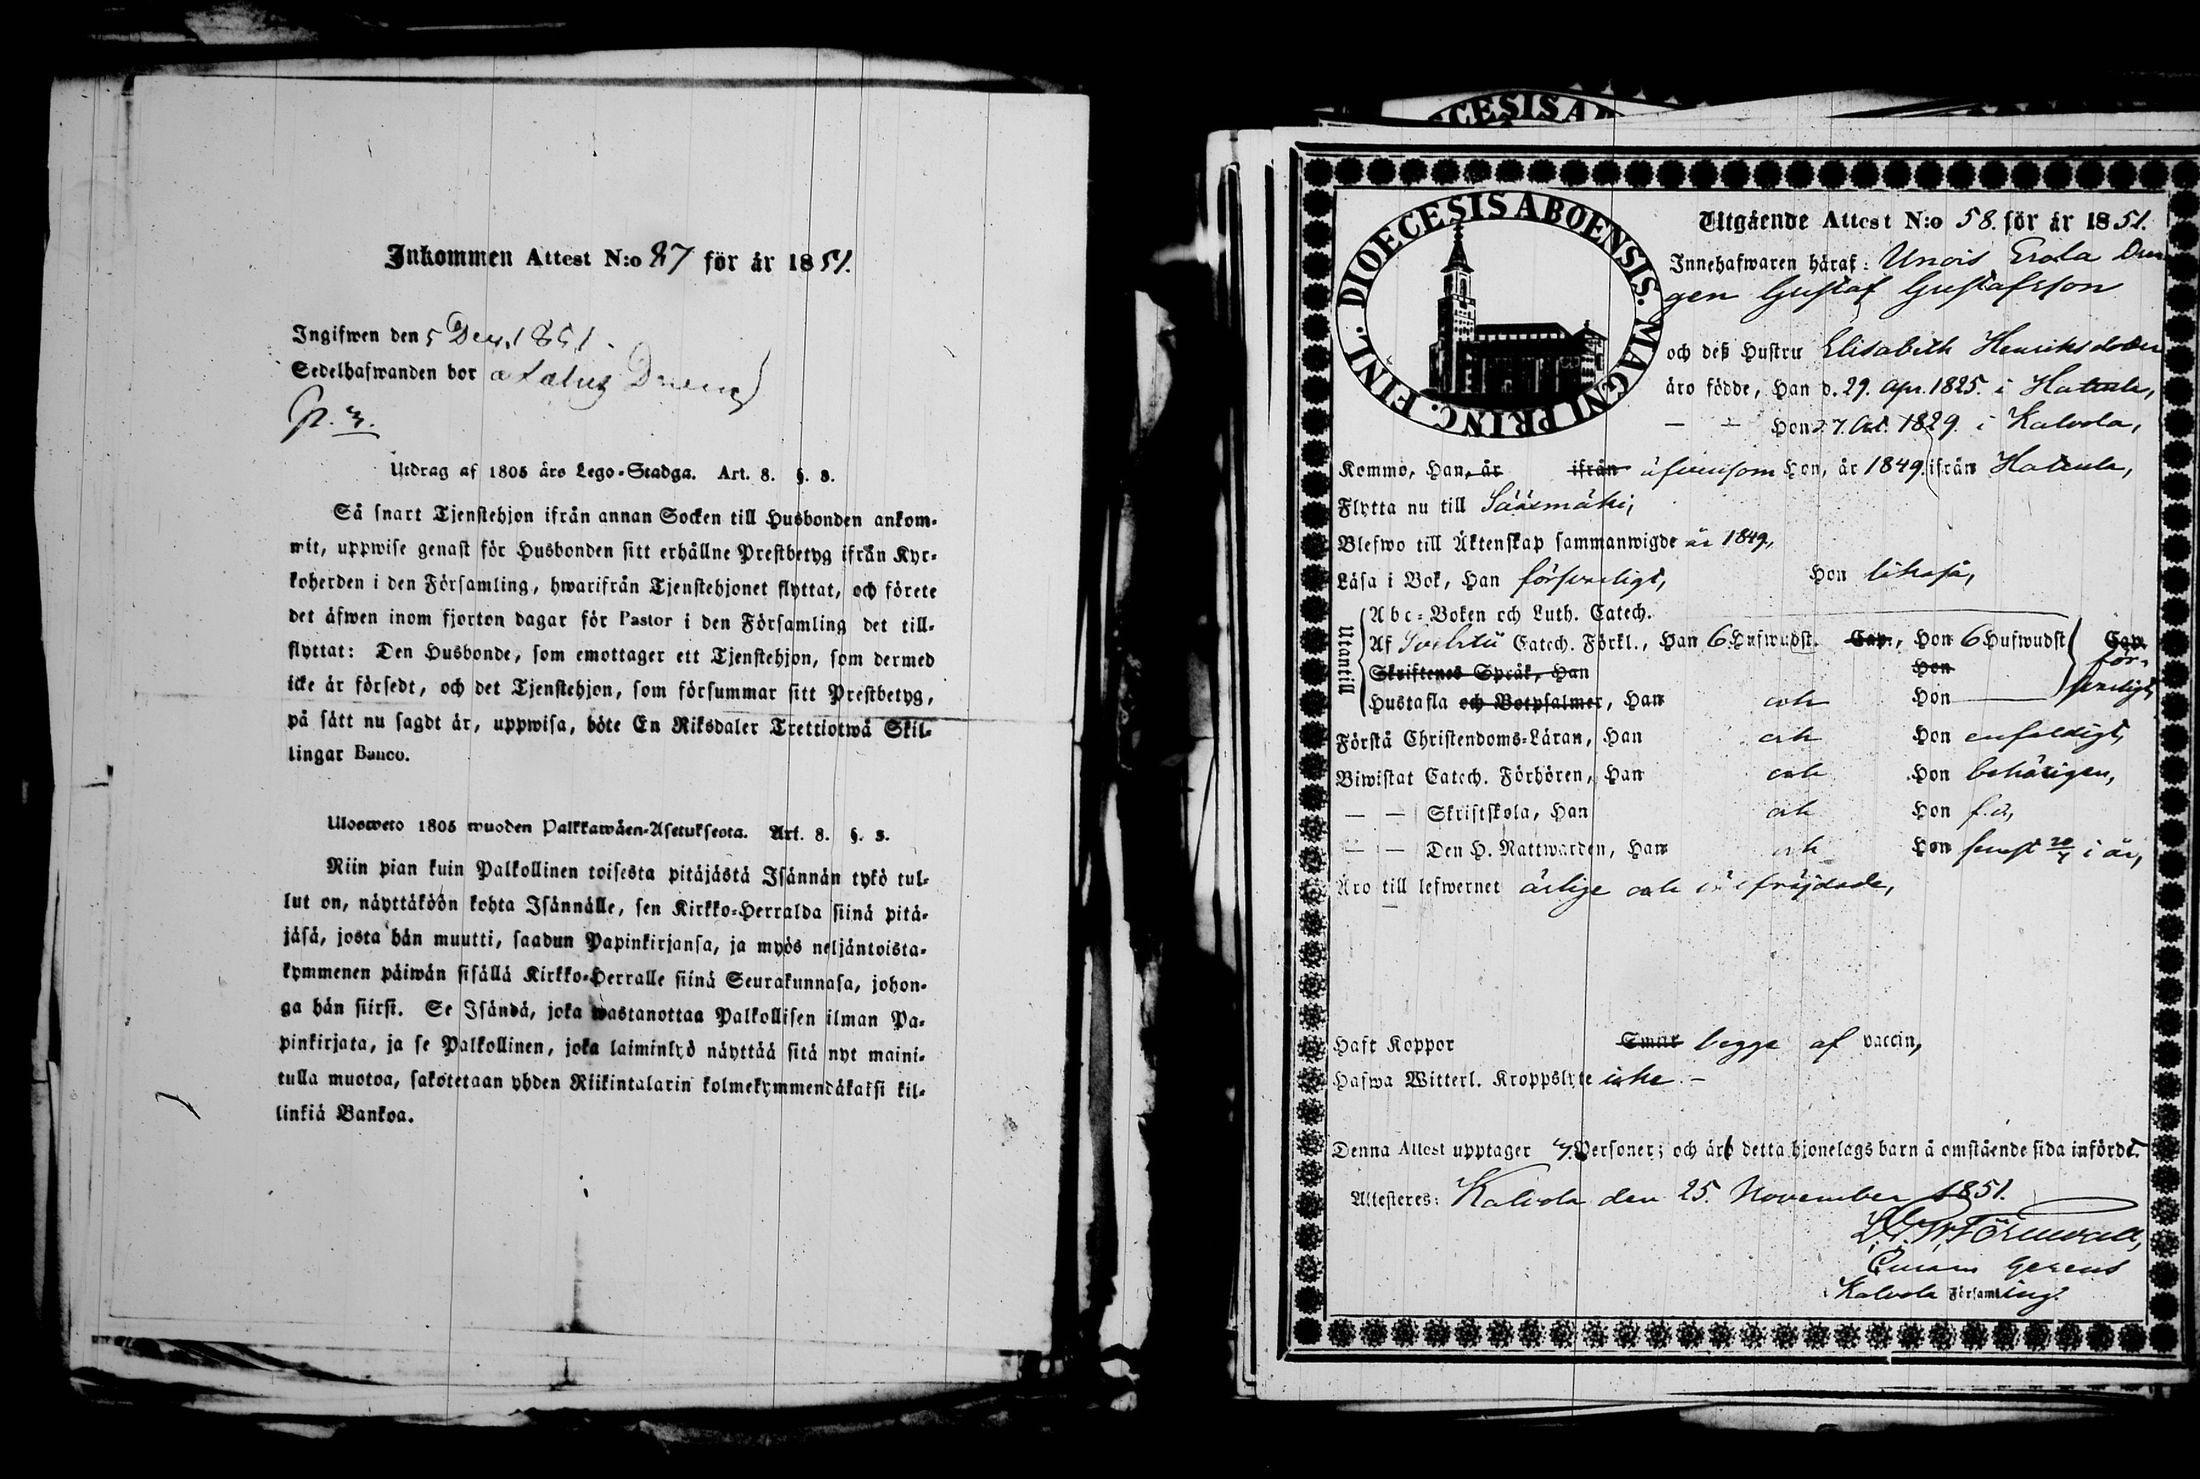 Inkommen Attest N:o 87 för år 1851.
Ingifwen den 5 Dec. 1851.
Sedelhafwanden bor
Utdrag af 1805 års Lego-Stadga. Art. 8. §. 3.
Så snart Tjenstehjon ifrån annan Socken till Husbonden ankom-
mit, uppwise genast för Husbonden sitt erhållne Prestbetyg ifrån Kyr-
koherden i den Församling, hwarifrån Tjenstehjonet flyttat, och förete
det äfwen inom fjorton dagar för Pastor i den Församling det till-
flyttat: Den Husbonde, som emottager ett Tjenstehjon, som dermed
icke är försedt, och det Tjenstehjon, som försummar sitt Prestbetyg,
på sätt nu sagdt är, uppwisa, böte En Riksdaler Trettiotwå Skil-
lingar Banco.
Uloswéto 1805 wuoden Palkkawäen-Asetuksesta. Art. 8. §. 3.
Niin pian kuin Palkollinen toisesta pitäjästä Isännän tykö tul-
lut on, näyttäköön kohta Isännälle, sen Kirkko-Herralda siinä pitä-
jäsä, josta hän muutti, saadun Papinkirjansa, ja myös neljäntoista-
kymmenen päiwän sisällä Kirkko-Herralle siinä Seurakunnasa, johon-
ga hän siirst. Se Isändä, joka wastanottaa Palkollisen ilman Pa-
pinkirjata, ja se Palkollinen, joka laiminlyö näyttää sitä nyt maini-
tulla muotoa, sakotetaan yhden Riikintalarin kolmekymmendäkaksi kil-
linkiä Bankoa.
CESIS A
DIOECESIS ABOENSIS. MAGNI PRINC. FINL.
Utgående Attest N:o 58. för år 1851.
Innehafwaren häraf: Unois Erola Drän
gen Gustaf Gustafsson
och deß Hustru Elisabeth Henriksdotter
äro födde, Han d. 29. Apr. 1825. i Hattula,
— — Hon d. 7. Oct. 1829. i Kalvola,
Kommo, Han, år ifrån äfvensom Hon, år 1849. ifrån Hattula,
Flytta nu till Sääxmäki,
Blefwo till Äktenskap sammanwigde år 1849,
Läsa i Bok, Han försvarligt, Hon likaså,
Utantill
Abc-Boken och Luth. Catech.
Af Svebilii Catech. Förkl., Han 6 Hufwudst. Cap., Hon 6 Hufwudst Cap.
Skriftenes Språk, Han Hon för-
Hustafla och Botpsalmer, Han och Hon svarligt,
Förstå Christendoms-Läran, Han och Hon enfaldigt,
Biwistat Catech. Förhören, Han och Hon behörigen,
— — Skriftskola, Han och Hon f. d,
— — Den H. Nattwarden, Han och Hon senast 20/4 i år,
Äro till lefwernet ärlige och välfräjdade,
Haft Koppor Smitt begge af vaccin,
Hafwa Witterl. Kroppslyte icke. —
Denna Attest upptager Personer; och äro detta hjonelags barn å omstående sida införde.
Attesteres: Kalvola den 25. November 1851.
Curam gerens
i Kalvola Församling.